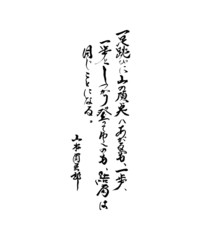 一足跳びに山の頂点へあがるのも、一歩、
一歩としっかり登ってゆくのも、結局は
同じことになる。
山本周五郎